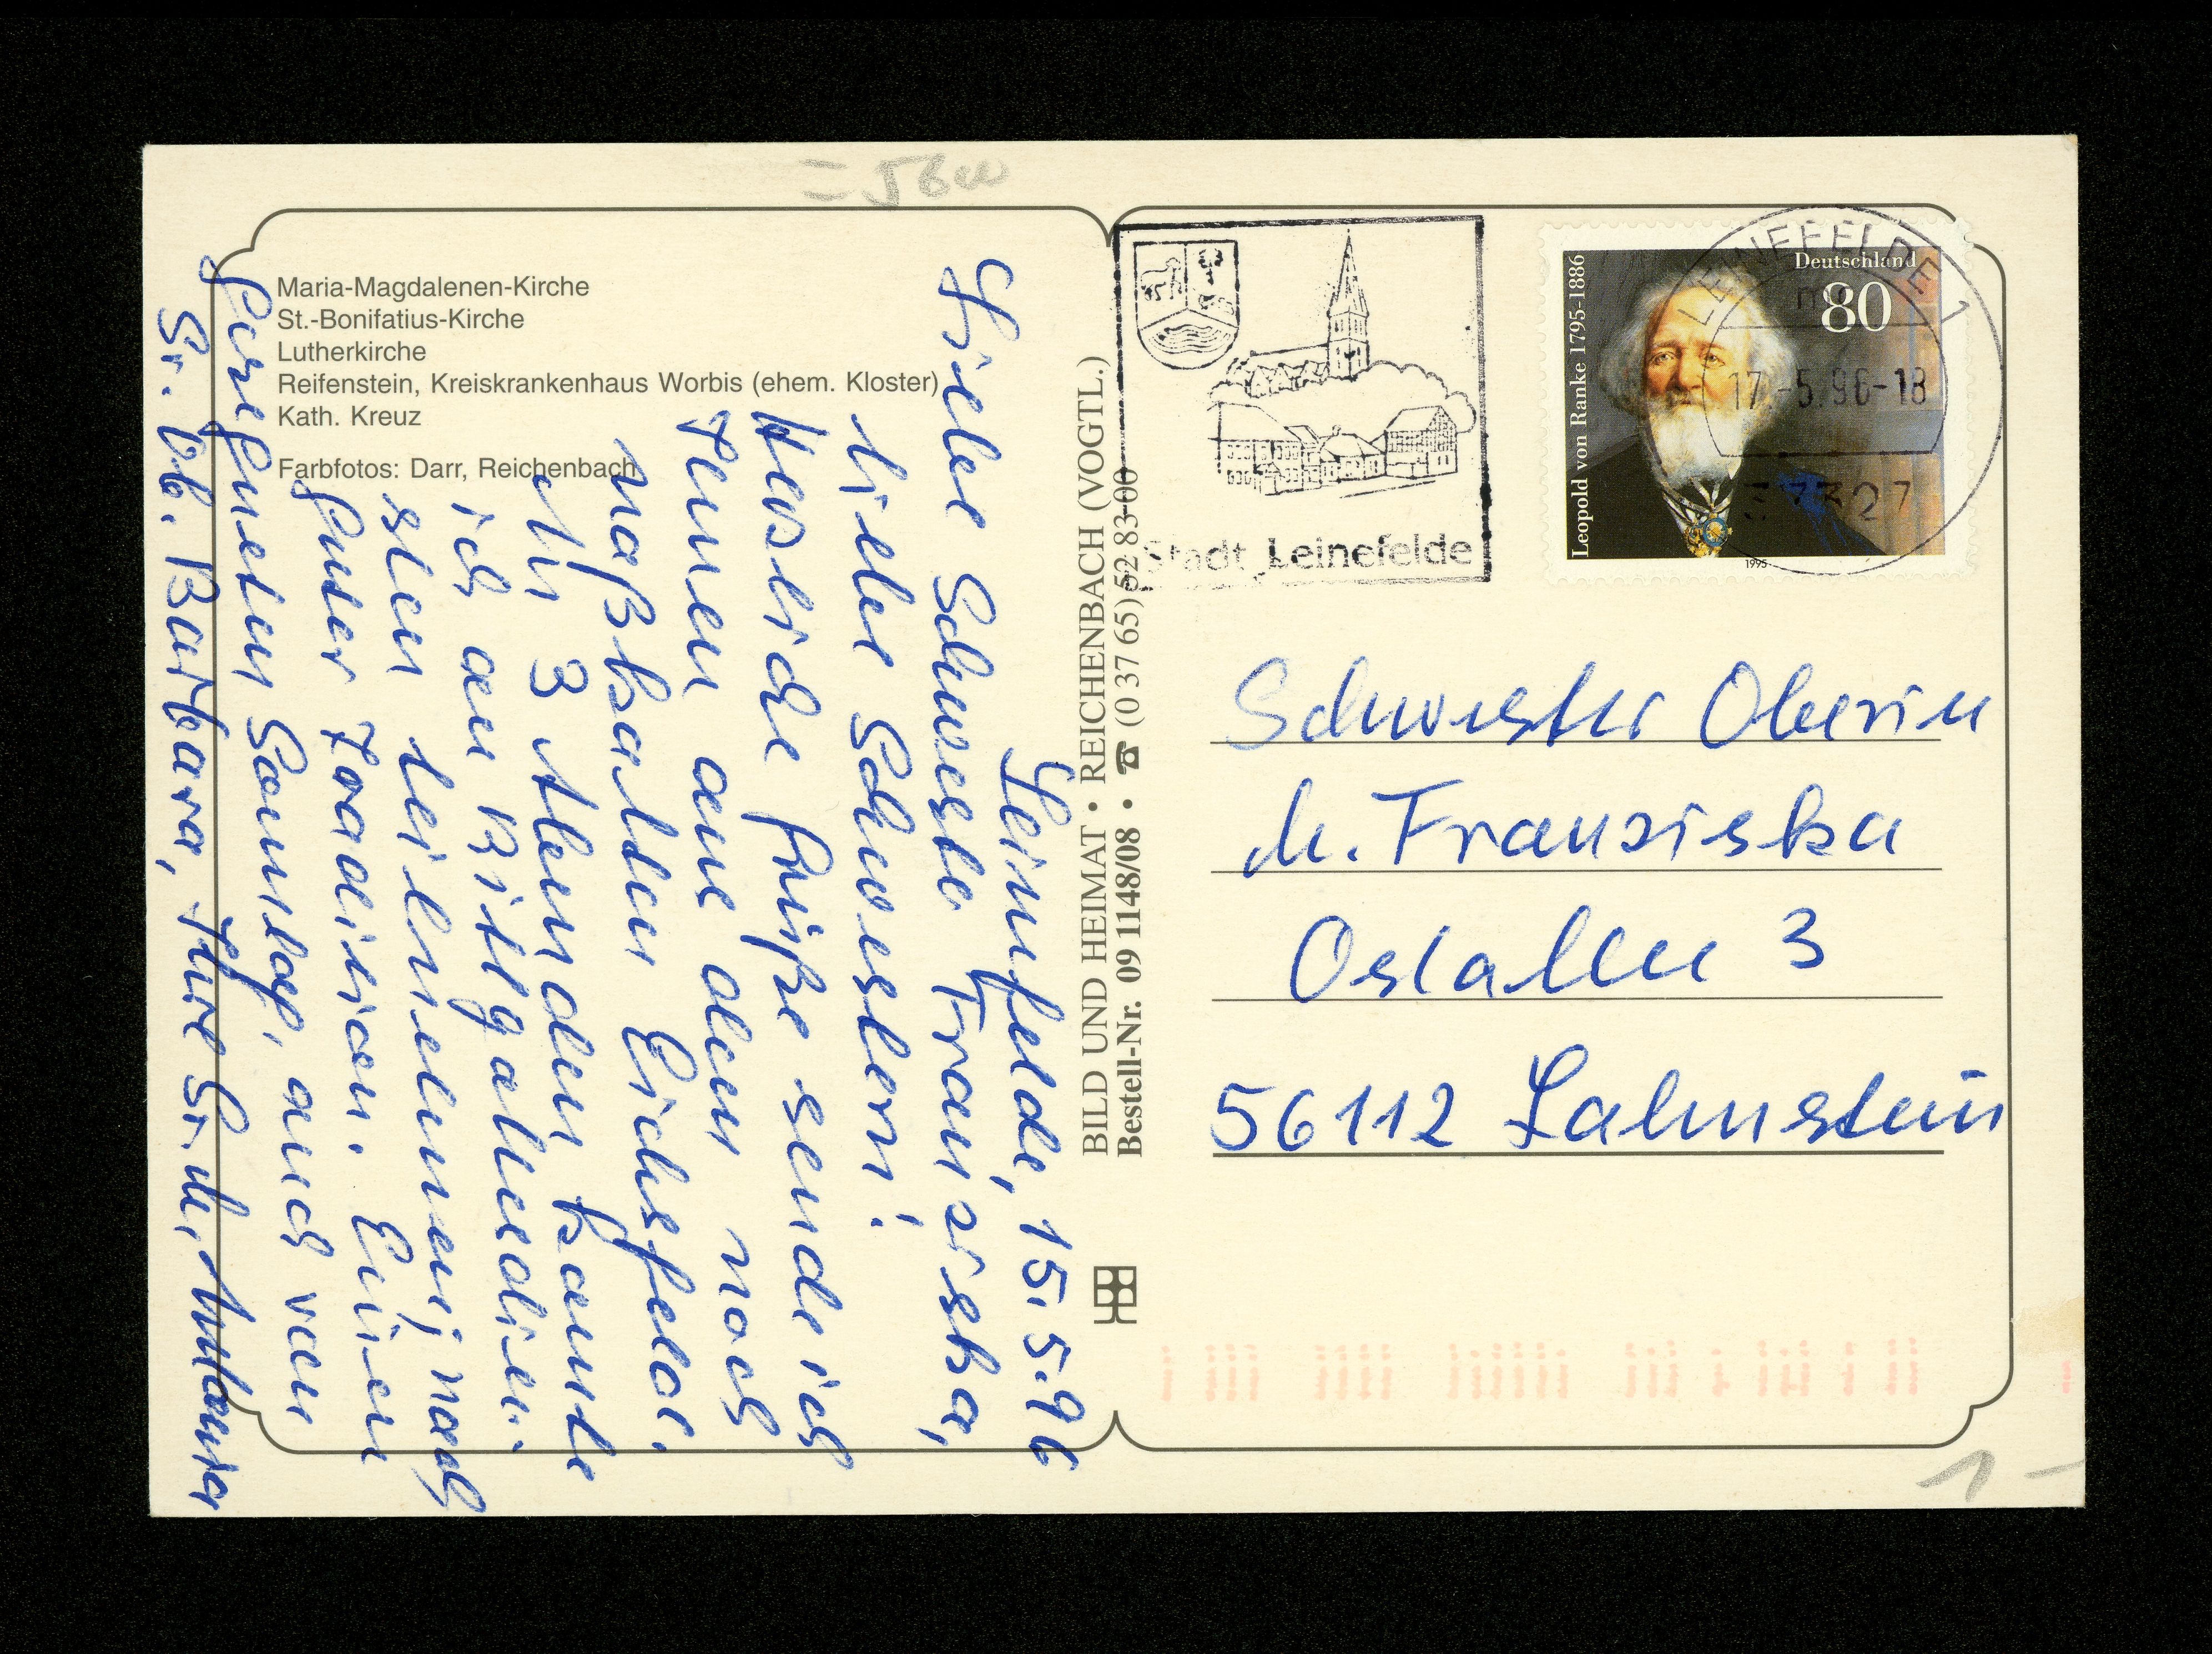 = 5800
Maria-Magdalenen-Kirche
St.-Bonifatius-Kirche
Lutherkirche
Reifenstein, Kreiskrankenhaus Worbis (ehem. Kloster)
Kath. Kreuz
Farbfotos: Darr, Reichenbach
Leinefelde, 15.5.96
Liebe Schwester Franziska,
liebe Schwestern!
Herzliche Grüße sende ich
Ihnen aus dem noch
naßkalten Eichsfeld.
An 3 Abenden konnte
ich an Bittgebeten
teilnehmen, nach
guter Tradition. Einen
gesegneten Sonntag, auch von
Sr. M. Barbara, Ihre Sr. M.
BILD UND HEIMAT • REICHENBACH (VOGTL.)
Bestell-Nr. 09 1148/08 • ☎ (0 37 65) 52 83-00
Stadt Leinefelde
Leopold von Ranke 1795-1886
Deutschland
80
1995
LEINEFELDE 1
mr
17.-5.96-18
37327
Schwester Oberin
M. Franziska
Ostallee 3
56112 Lahnstein
1-